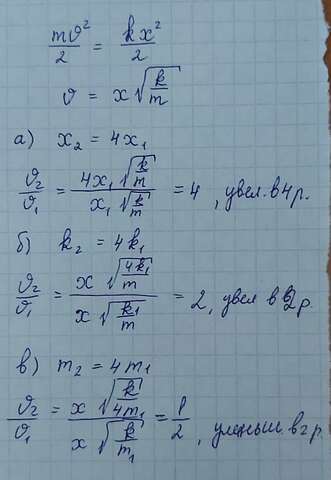 mϑ²/2 = kx²/2
ϑ = x √(k/m)
а) x₂ = 4x₁
ϑ₂/ϑ₁ = (4x₁ √(k/m))/(x₁ √(k/m)) = 4, увел. в 4 р.
б) k₂ = 4k₁
ϑ₂/ϑ₁ = (x √(4k₁/m))/(x √(k₁/m)) = 2, увел в 2 р.
в) m₂ = 4m₁
ϑ₂/ϑ₁ = (x √(k/4m₁))/(x √(k/m₁)) = 1/2, уменьш. в 2 р.